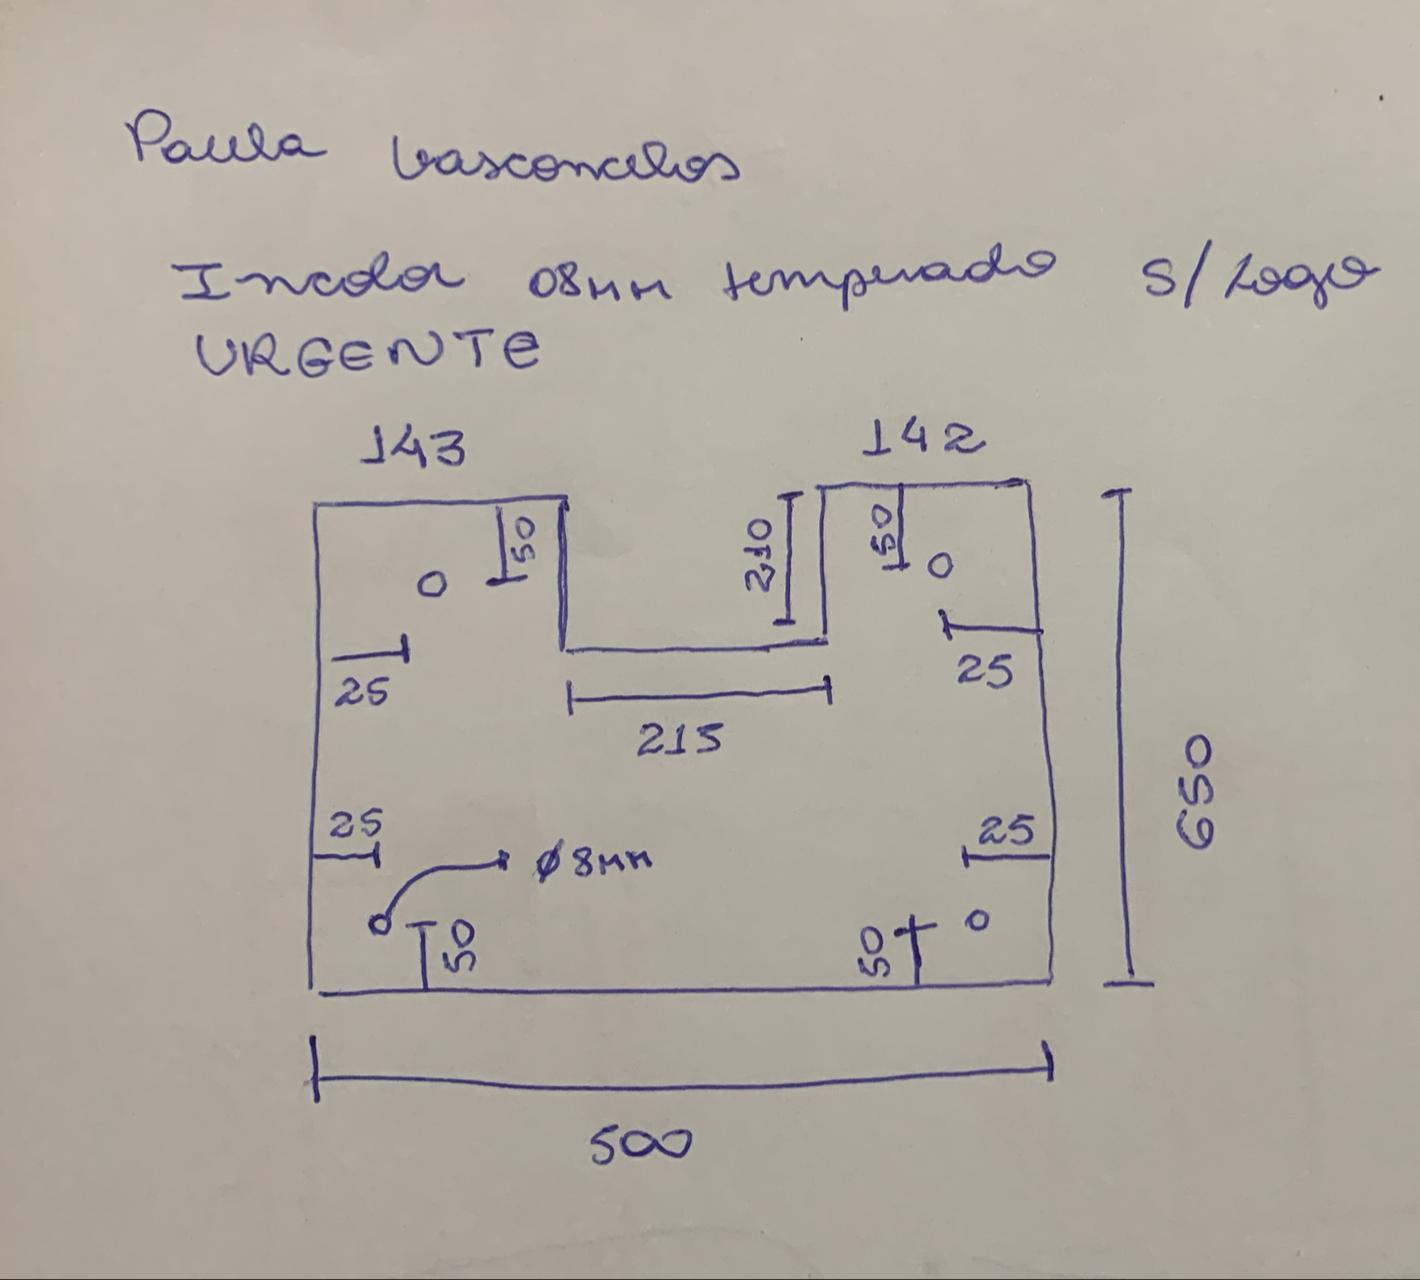 Paula Vasconcelos
Incolor 08mm temperado s/ Logo
URGENTE
143
142
50
210
50
25
25
215
650
25
25
Ø8mm
50
50
500